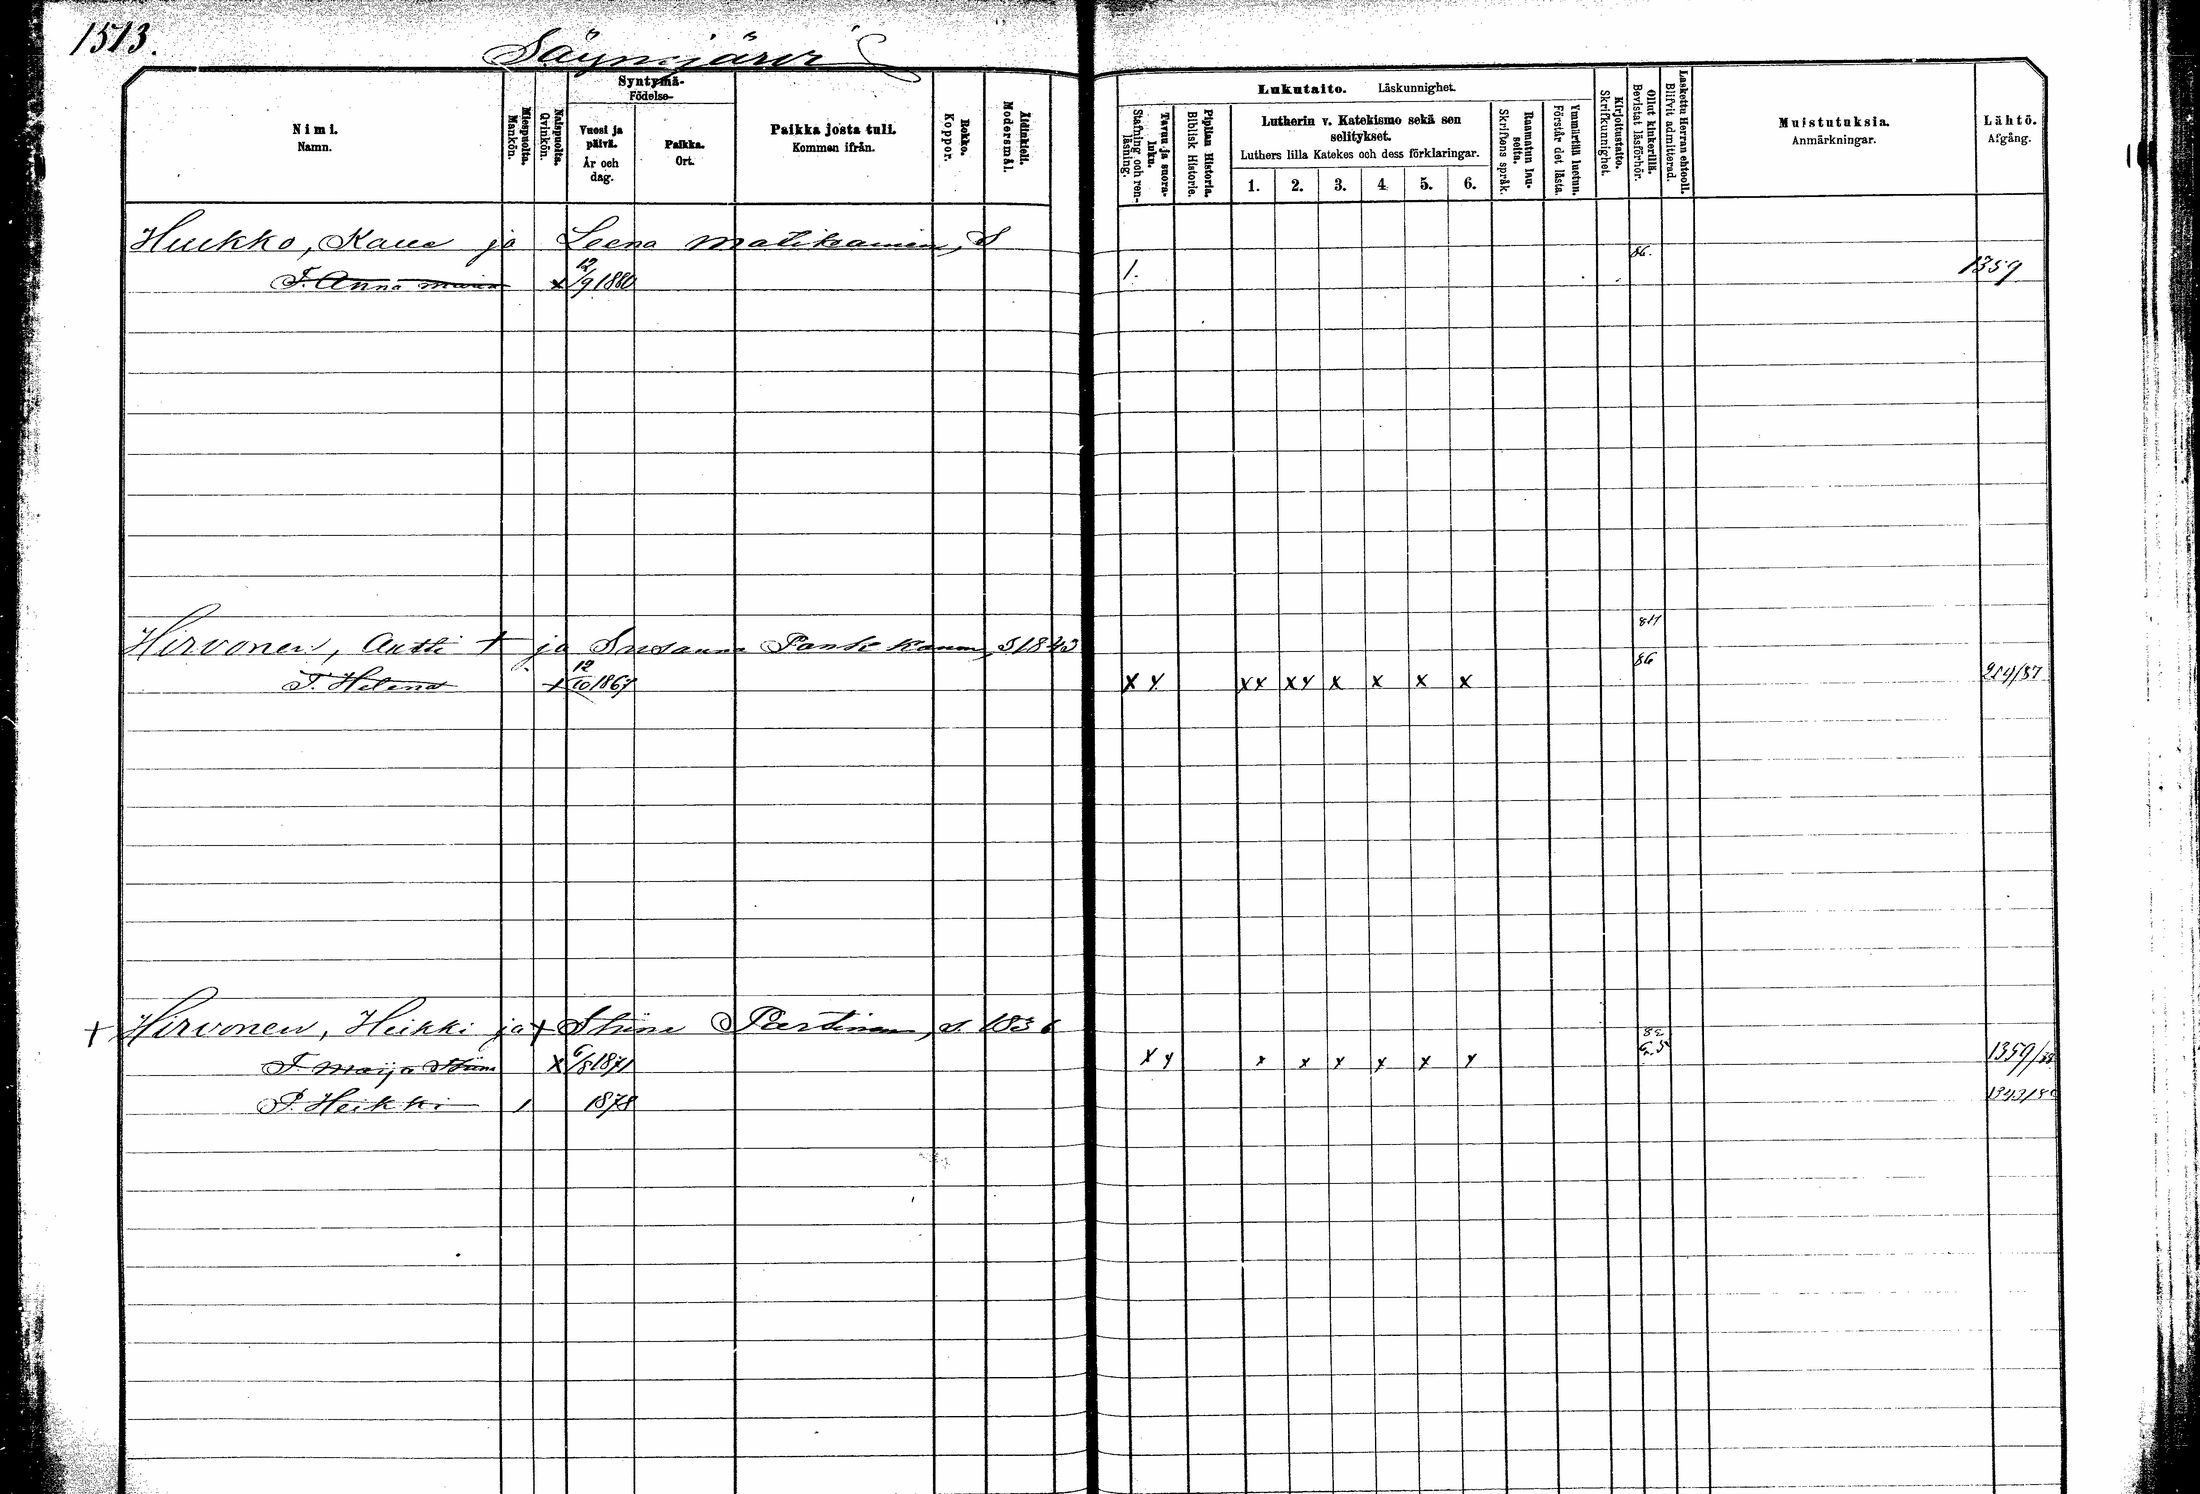 1513.
Säynejärvi
Nimi. Namn.
Miespuolta. Mankön.
Naispuolta. Qvinkön.
Syntymä- Födelse-
Vuosi ja päivä. År och dag.
Paikka. Ort.
Paikka josta tuli. Kommen ifrån.
Rokko. Koppor.
Äidinkieli. Modersmål.
Tavuu ja suora-luku. Stafning och ren-läsning.
Piplian Historia. Biblisk Historie.
Lukutaito. Läskunnighet.
Lutherin v. Katekismo sekä sen selitykset.
Luthers lilla Katekes och dess förklaringar.
1. 2. 3. 4. 5. 6.
Raamatun lau-seita. Skriftens språk.
Ymmärtää luetun. Förstår det lästa.
Kirjoitustaito. Skrifkunnighet.
Ollut kinkerillä. Bevistat läsförhör.
Laskettu Herran ehtooll. Blifvit admitterad.
Muistutuksia. Anmärkningar.
Lähtö. Afgång.
Huukko, ja Leena Matikainen, S
86.
T. Anna Maria x 12/9 1880 1. 1359
Hirvonen, Antti + ja Susanna S 1843
86
T. Helena x 12/10 1867 x y xx xy x x x x 219/87
+ Hirvonen, Heikki ja + Stiina Partinen, S. 1836
T. Maija Stiina x 6/8 1871 x y x x x x x x 1359/88
P. Heikki 1 1878